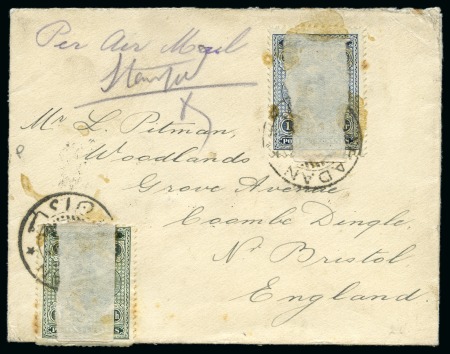 Per Air Mail
Mr L. Pitman,
Woodlands
Grove Avenue
Coombe Dingle,
Nr Bristol
England.
ADAN